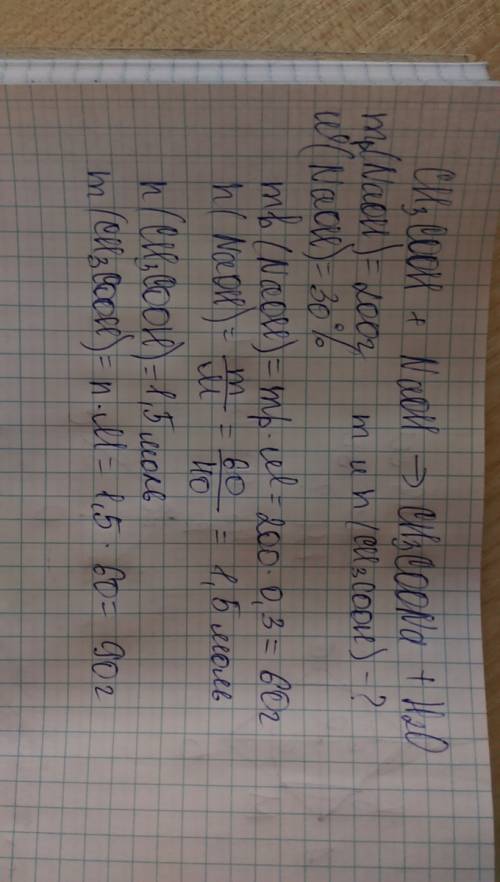 CH₃COOH + NaOH → CH₃COONa + H₂O
mр(NaOH) = 200г m и n(CH₃COOH) - ?
w(NaOH) = 30%
mв(NaOH) = mр · w = 200 · 0,3 = 60г
n(NaOH) = m/M = 60/40 = 1,5 моль
n(CH₃COOH) = 1,5 моль
m(CH₃COOH) = n · M = 1,5 · 60 = 90г